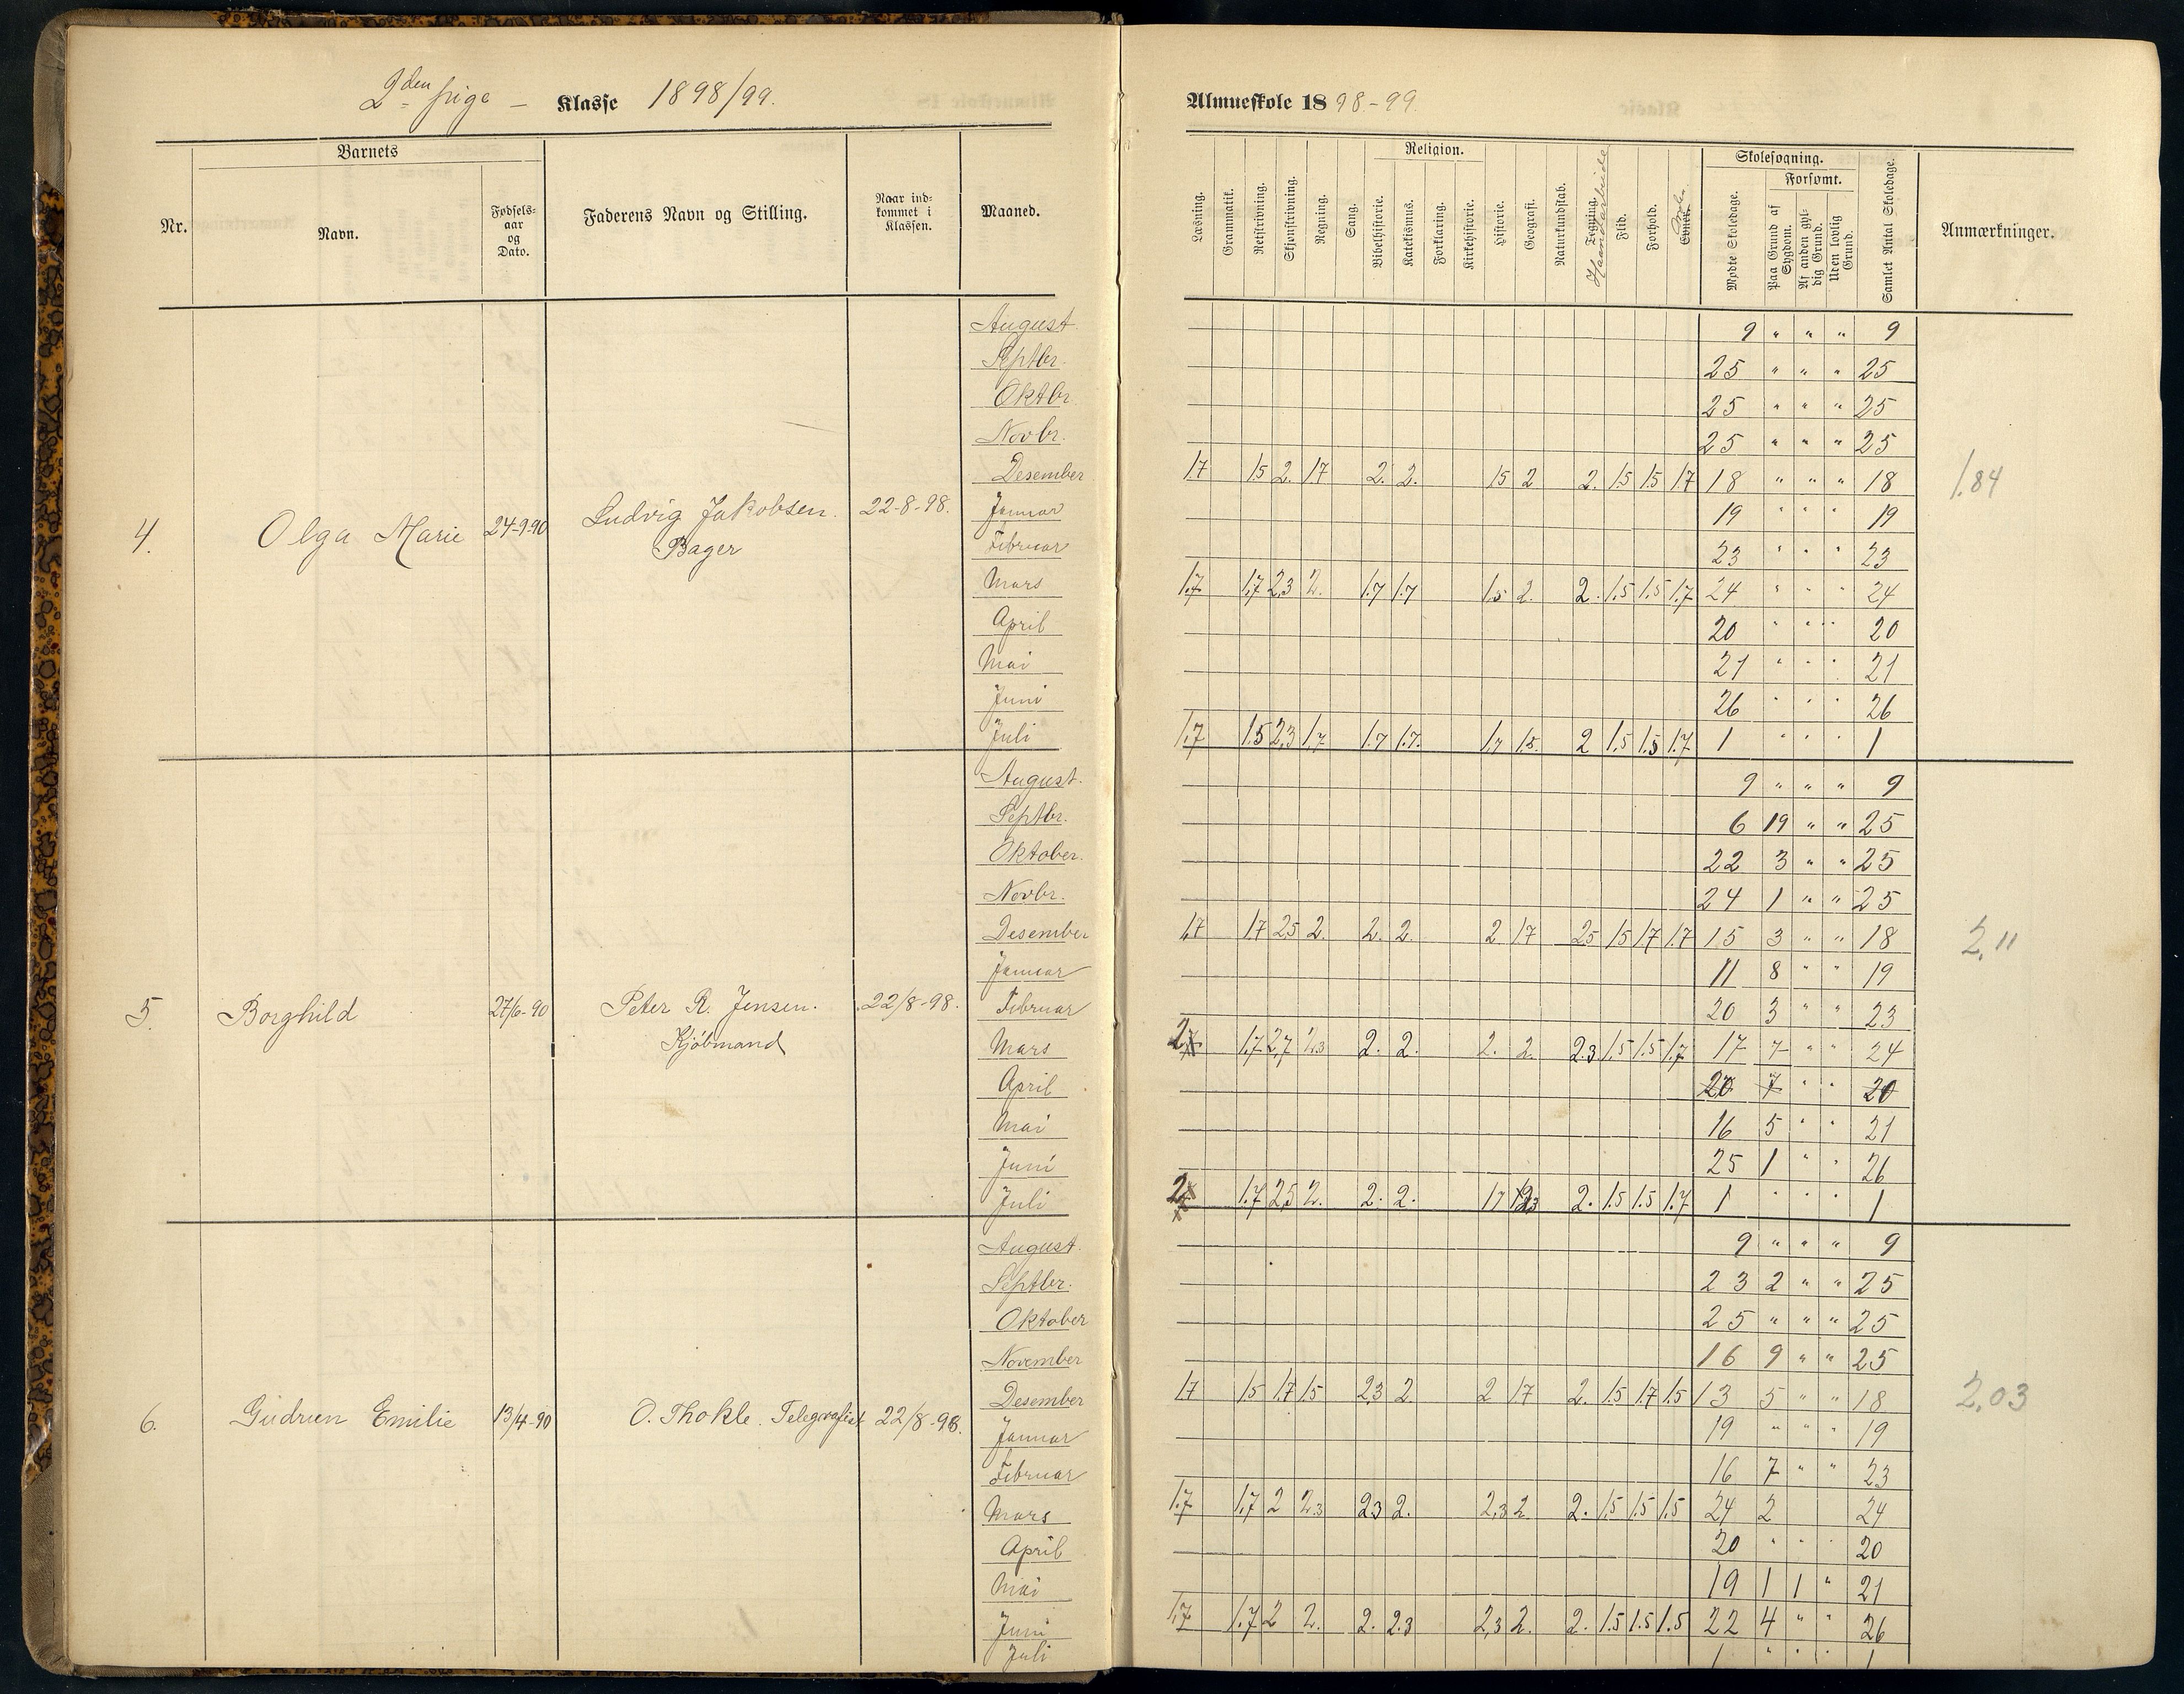 2den pige – Klasse 1898/99.
Almueskole 1898-99.
Nr.
Barnets
Navn.
Fødsels-
aar
og
Dato.
Faderens Navn og Stilling.
Naar ind-
kommet i
Klassen.
Maaned.
Læsning.
Grammatik.
Retskrivning.
Skjønskrivning.
Regning.
Sang.
Religion.
Bibelhistorie.
Katekismus.
Forklaring.
Kirkehistorie.
Historie.
Geografi.
Naturkundskab.
Tegning.
Haandarbeide
Flid.
Forhold.
Evner.
Skolesøgning.
Mødte Skoledage.
Forsømt.
Paa Grund af
Sygdom.
Af anden gyl-
dig Grund.
Uden lovlig
Grund.
Samlet Antal Skoledage.
Anmærkninger.
4. Olga Marie 24-9-90 Ludvig Jakobsen. 22-8-98.
Bager
August. 9 " " " 9
Septbr. 25 " " " 25
Oktbr. 25 " " " 25
Novbr. 25 " " " 25
Desember 1.7 1.5 2. 1.7 2. 2. 1.5 2 2. 1.5 1.5 1.7 18 " " " 18 1.84
Januar 19 " " " 19
Februar 23 " " " 23
Mars 1.7 1.7 2.3 2. 1.7 1.7 1.5 2. 2. 1.5 1.5 1.7 24 " " " 24
April 20 " " " 20
Mai 21 " " " 21
Juni 26 " " " 26
Juli 1.7 1.5 2.3 1.7 1.7 1.7. 1.7 1.5. 2 1.5 1.5 1.7 1 " " " 1
5. Borghild 27/6-90 Peter R. Jensen. 22/8-98.
Kjøbmand
August. 9 " " " 9
Septbr. 6 19 " " 25
Oktober. 22 3 " " 25
Novbr. 24 1 " " 25
Desember 1.7 1.7 2.5 2. 2. 2. 2 1.7 2.5 1.5 1.7 1.7 15 3 " " 18 2,11
Januar 11 8 " " 19
Februar 20 3 " " 23
Mars 2 1.7 2.7 2.3 2. 2. 2. 2. 2.3 1.5 1.5 1.7 17 7 " " 24
April 20 7 " " 20
Mai 16 5 " " 21
Juni 25 1 " " 26
Juli 2 1.7 2.5 2. 2. 2. 1.7 2. 1.5 1.5 1.7 1 " " " 1
6. Gudrun Emilie 13/4-90 O. Thokle. Telegrafist 22/8-98.
August. 9 " " " 9
Septbr. 23 2 " " 25
Oktober 25 " " " 25
November 16 9 " " 25
Desember 1.7 1.5 1.7 1.5 2.3 2. 2 1.7 2. 1.5 1.7 1.5 13 5 " " 18 2,03
Januar 19 " " " 19
Februar 16 7 " " 23
Mars 1.7 1.7 2 2.3 2.3 2. 2.3 2 2. 1.5 1.5 1.5 24 2 24
April 20 " " " 20
Mai 19 1 1 " 21
Juni 1.7 1.7 2 2. 2. 2.3 2.3 2. 2. 1.5 1.5 1.5 22 4 " " 26
Juli 1 " " " 1